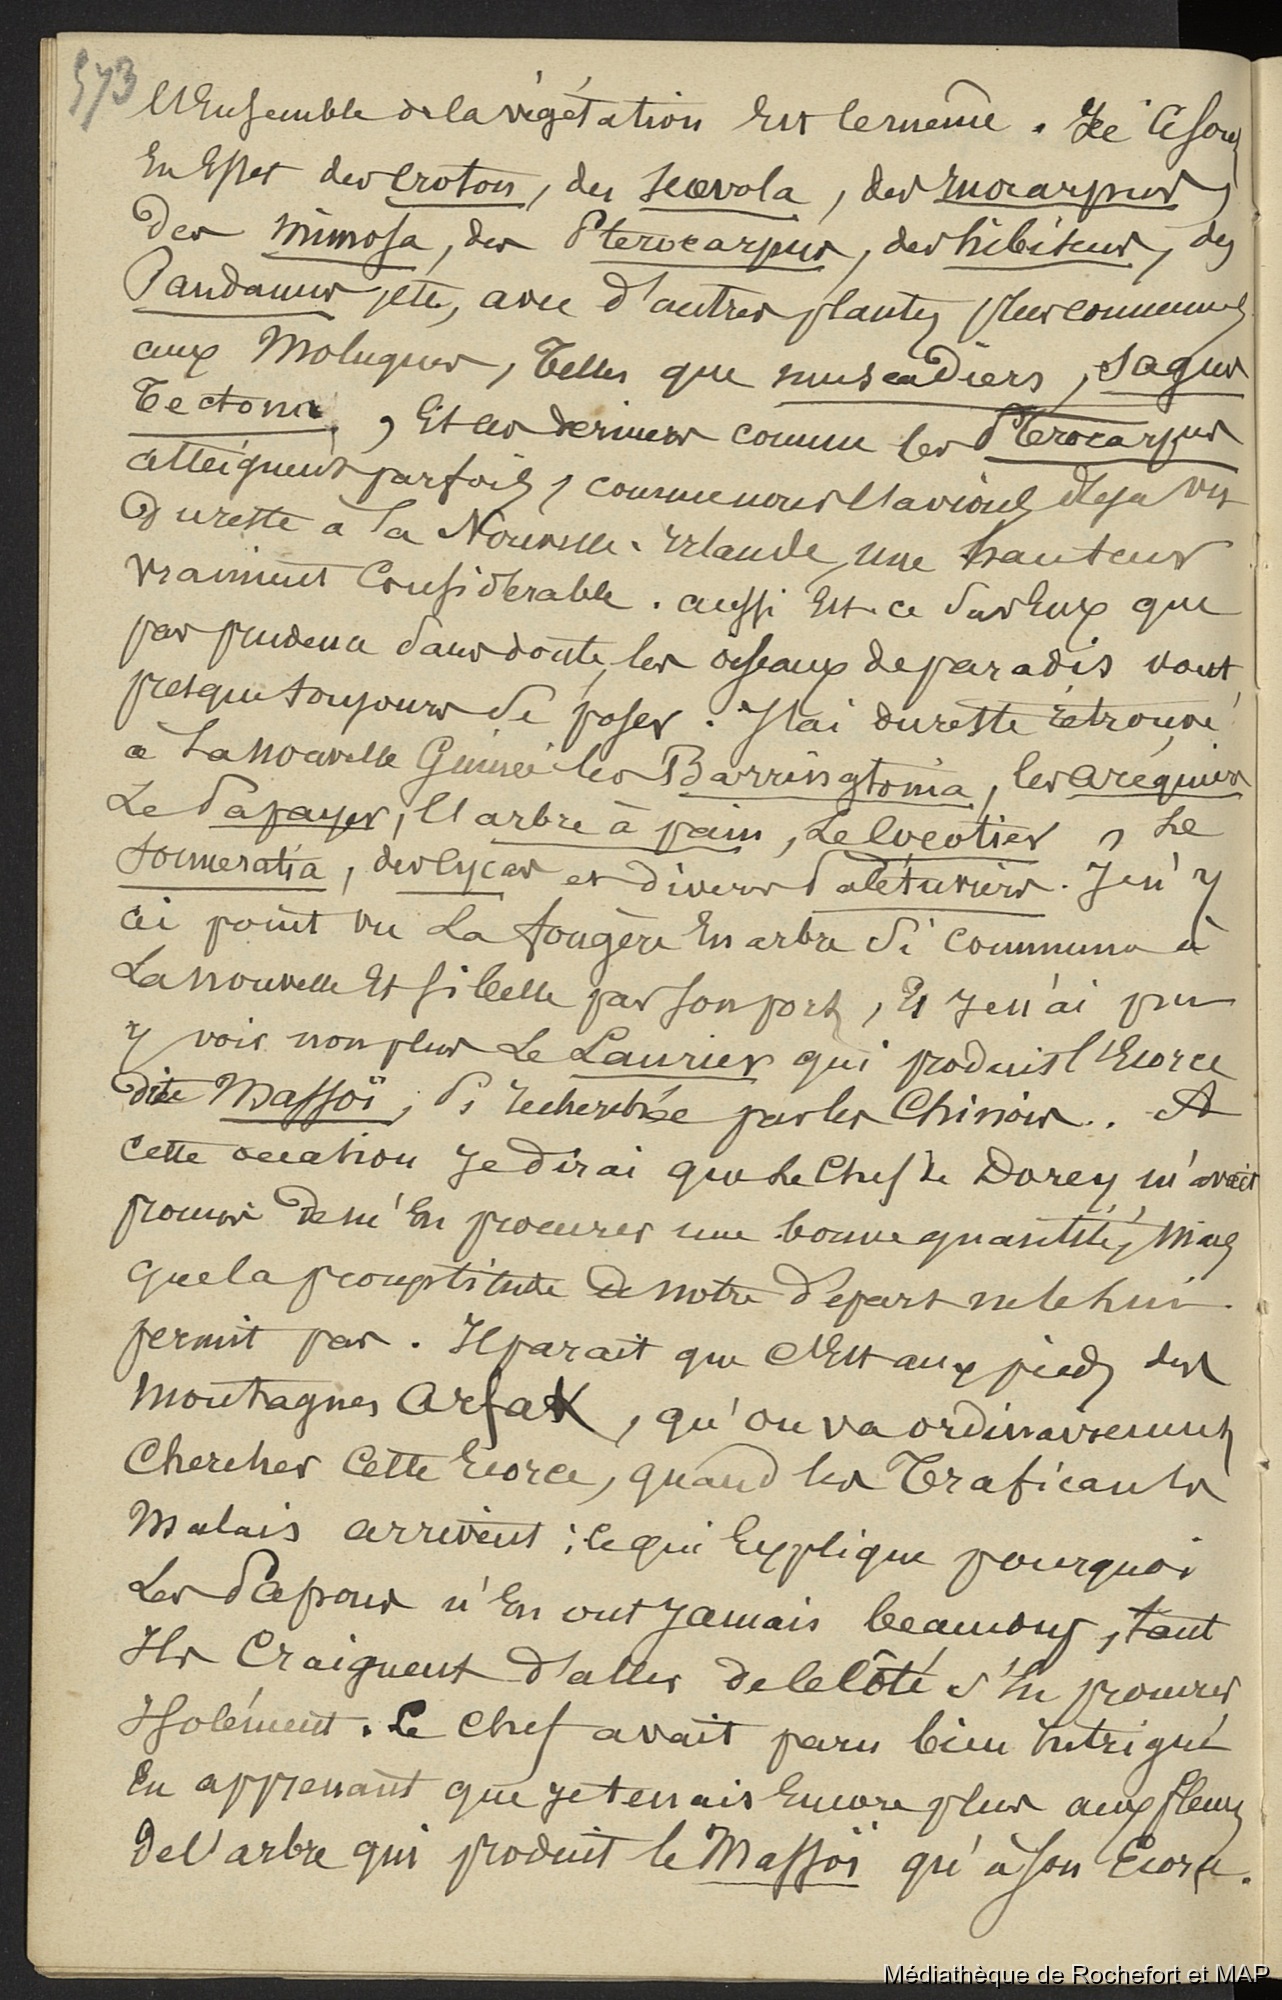 573
l'Ensemble de la végétation Est le même. Ici ce sont
En Effet des croton, des scœvola, des Inocarpus,
Des mimosa, des Pterocarpus, des hibiscus, des
Pandanus, etc, avec d'autres plantes plus communes
aux Moluques, Telles que muscadiers, sagus
Tectona, Et ces derniers comme les Pterocarpus
atteignent parfois, comme nous l'avions déja vu
Du reste à la Nouvelle-Irlande, une hauteur
vraiment Considérable. aussi Est-ce sur Eux que
par prudence sans doute, les oiseaux de paradis vont
presque toujours se poser. J'ai du reste retrouvé
à La nouvelle Guinée les Barringtonia, les aréquiers
Le Papayer, l'arbre à pain, Le Cocotier, Le
sonneratia, des Cycas et divers Palétuviers. Je n'y
ai point vu La fougère En arbre si commune à
La nouvelle Et si belle par son port, Et je n'ai pu
y voir non plus Le Laurier qui produit l'Ecorce
dite Massoï, si recherchée par les Chinois. A
cette occasion Je dirai que Le Chef de Dorey m'avait
promis de m'En procurer une bonne quantité, Mais
que la promptitude de notre départ ne le lui
permit pas. Il parait que c'Est aux pieds des
Montagnes Arfak, qu'on va ordinairement
Chercher Cette Ecorce, quand les Traficants
Malais arrivent; ce qui Explique pourquoi
Les Papous n'En ont Jamais beaucoup, tant
Ils Craignent d'aller de ce Côté s'En procurer
Isolément. Le Chef avait paru bien intrigué
En apprenant que Je tenais Encore plus aux fleurs
De l'arbre qui produit le Massoï qu'à son Ecorce.
Médiathèque de Rochefort et MAP